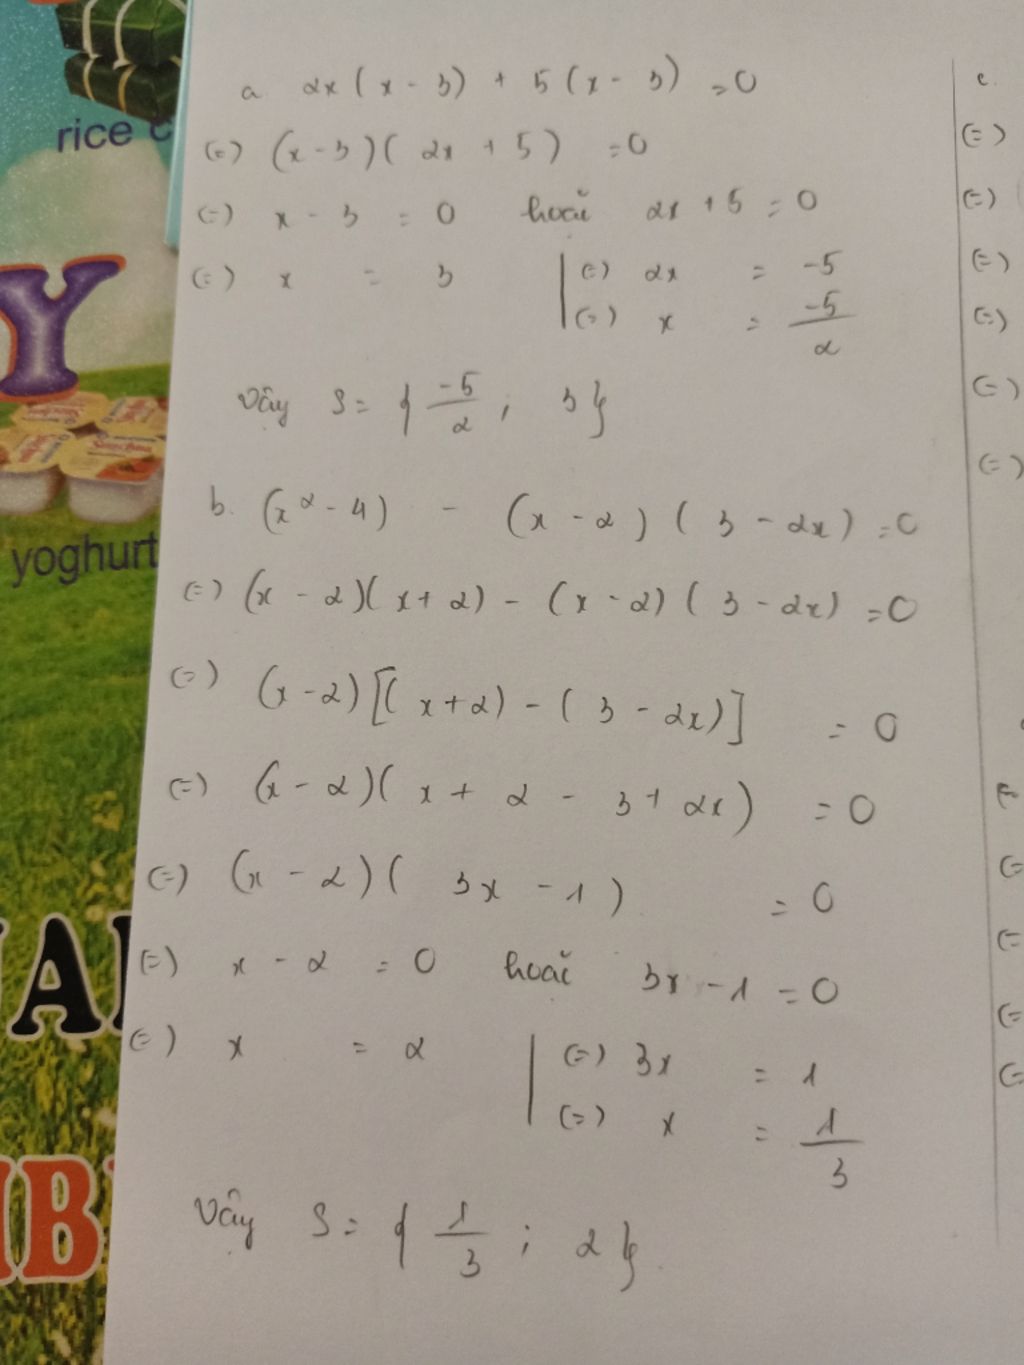 rice c
Y
yoghurt
AI
B
a. 2x(x - 3) + 5(x - 3) = 0
(=) (x - 3)(2x + 5) = 0
(=) x - 3 = 0 hoặc 2x + 5 = 0
(=) x = 3 | (=) 2x = -5
(=) x = -5/2
Vậy S = { -5/2 ; 3 }
b. (x² - 4) - (x - 2)(3 - 2x) = 0
(=) (x - 2)(x + 2) - (x - 2)(3 - 2x) = 0
(=) (x - 2)[(x + 2) - (3 - 2x)] = 0
(=) (x - 2)(x + 2 - 3 + 2x) = 0
(=) (x - 2)(3x - 1) = 0
(=) x - 2 = 0 hoặc 3x - 1 = 0
(=) x = 2 | (=) 3x = 1
(=) x = 1/3
Vậy S = { 1/3 ; 2 }
c.
(=)
(=)
(=)
(=)
(=)
(=)